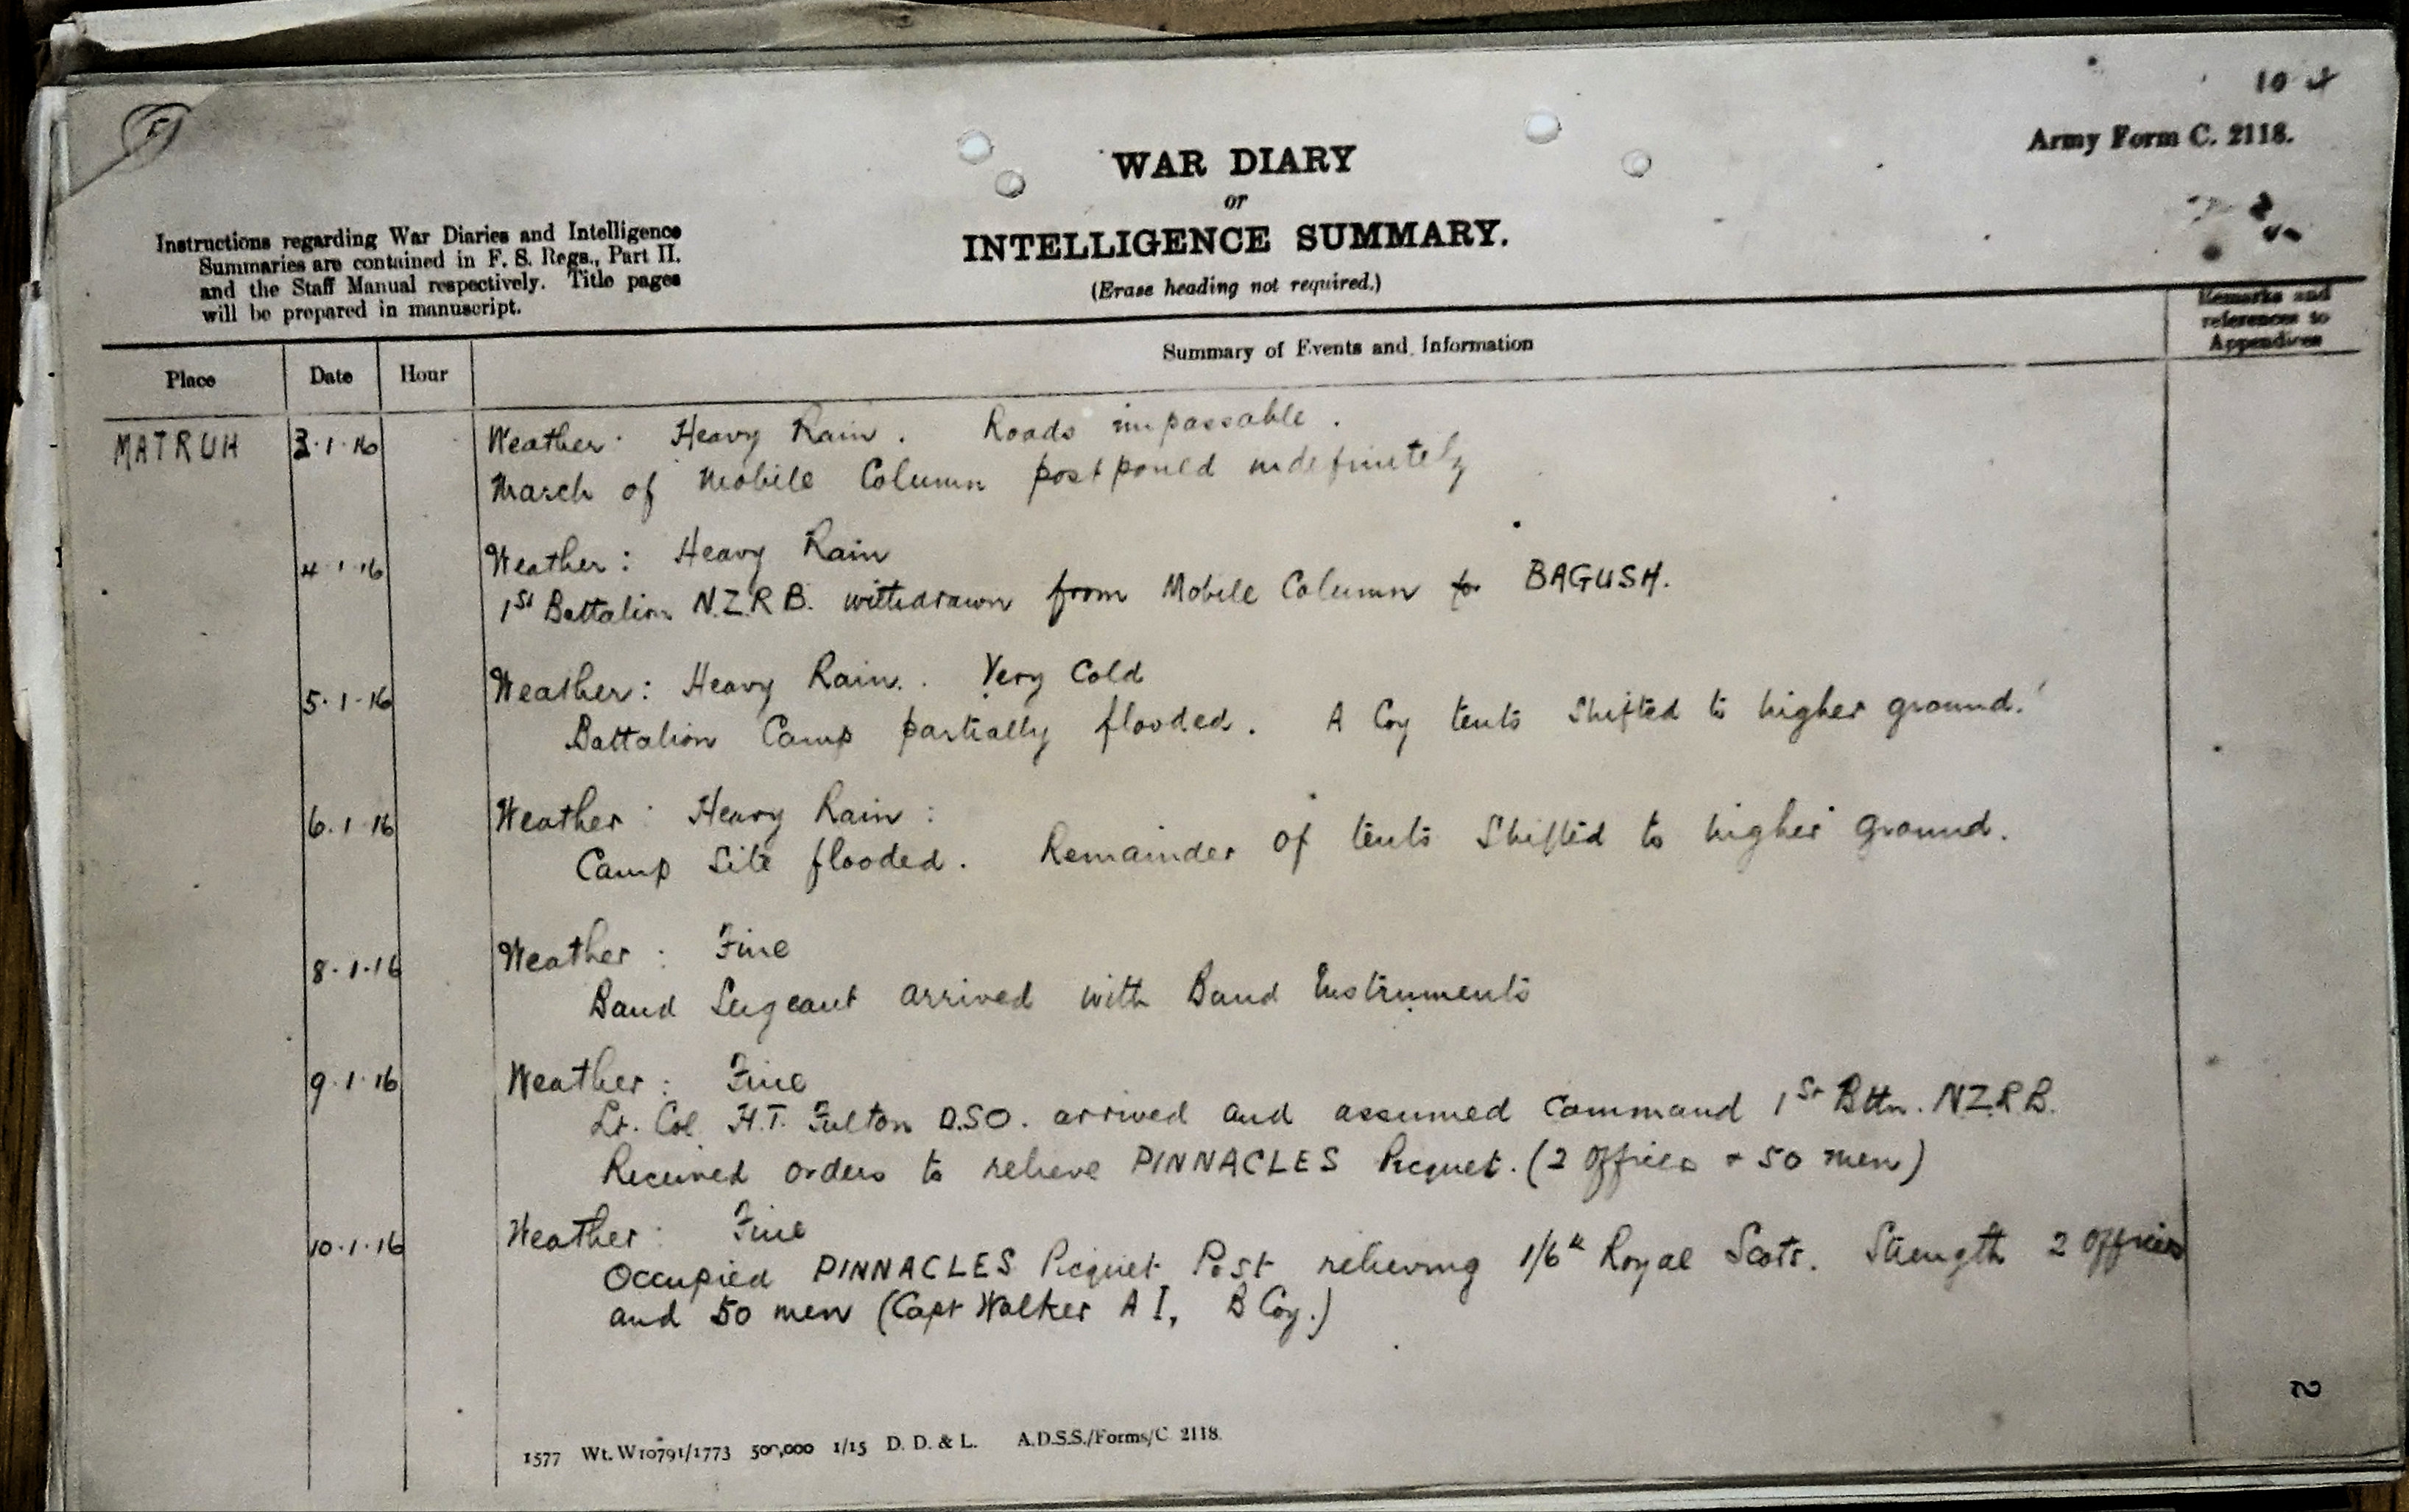 10
Army Form C. 2118.
WAR DIARY
or
INTELLIGENCE SUMMARY.
(Erase heading not required.)
Instructions regarding War Diaries and Intelligence
Summaries are contained in F. S. Regs., Part II.
and the Staff Manual respectively. Title pages
will be prepared in manuscript.
Place Date Hour Summary of Events and Information Remarks and
references to
Appendices
MATRUH 3.1.16 Weather. Heavy Rain. Roads impassable.
March of Mobile Column postponed indefinitely
4.1.16 Weather: Heavy Rain
1st Battalion N.Z.R.B. withdrawn from Mobile Column to BAGUSH.
5.1.16 Weather: Heavy Rain. Very Cold
Battalion Camp partially flooded. A Coy tents shifted to higher ground.
6.1.16 Weather: Heavy Rain:
Camp Site flooded. Remainder of tents shifted to higher ground.
8.1.16 Weather: Fine
Band Sergeant arrived with Band Instruments
9.1.16 Weather: Fine
Lt. Col. H.T. Fulton D.S.O. arrived and assumed command 1st Bttn. N.Z.R.B.
Received orders to relieve PINNACLES Picquet. (2 Officers + 50 men)
10.1.16 Weather: Fine
Occupied PINNACLES Picquet Post relieving 1/6th Royal Scots. Strength 2 Officers
and 50 men (Capt Walker A I, B Coy.)
2
1577 Wt. W10791/1773 500,000 1/15 D. D. & L. A.D.S.S./Forms/C. 2118.